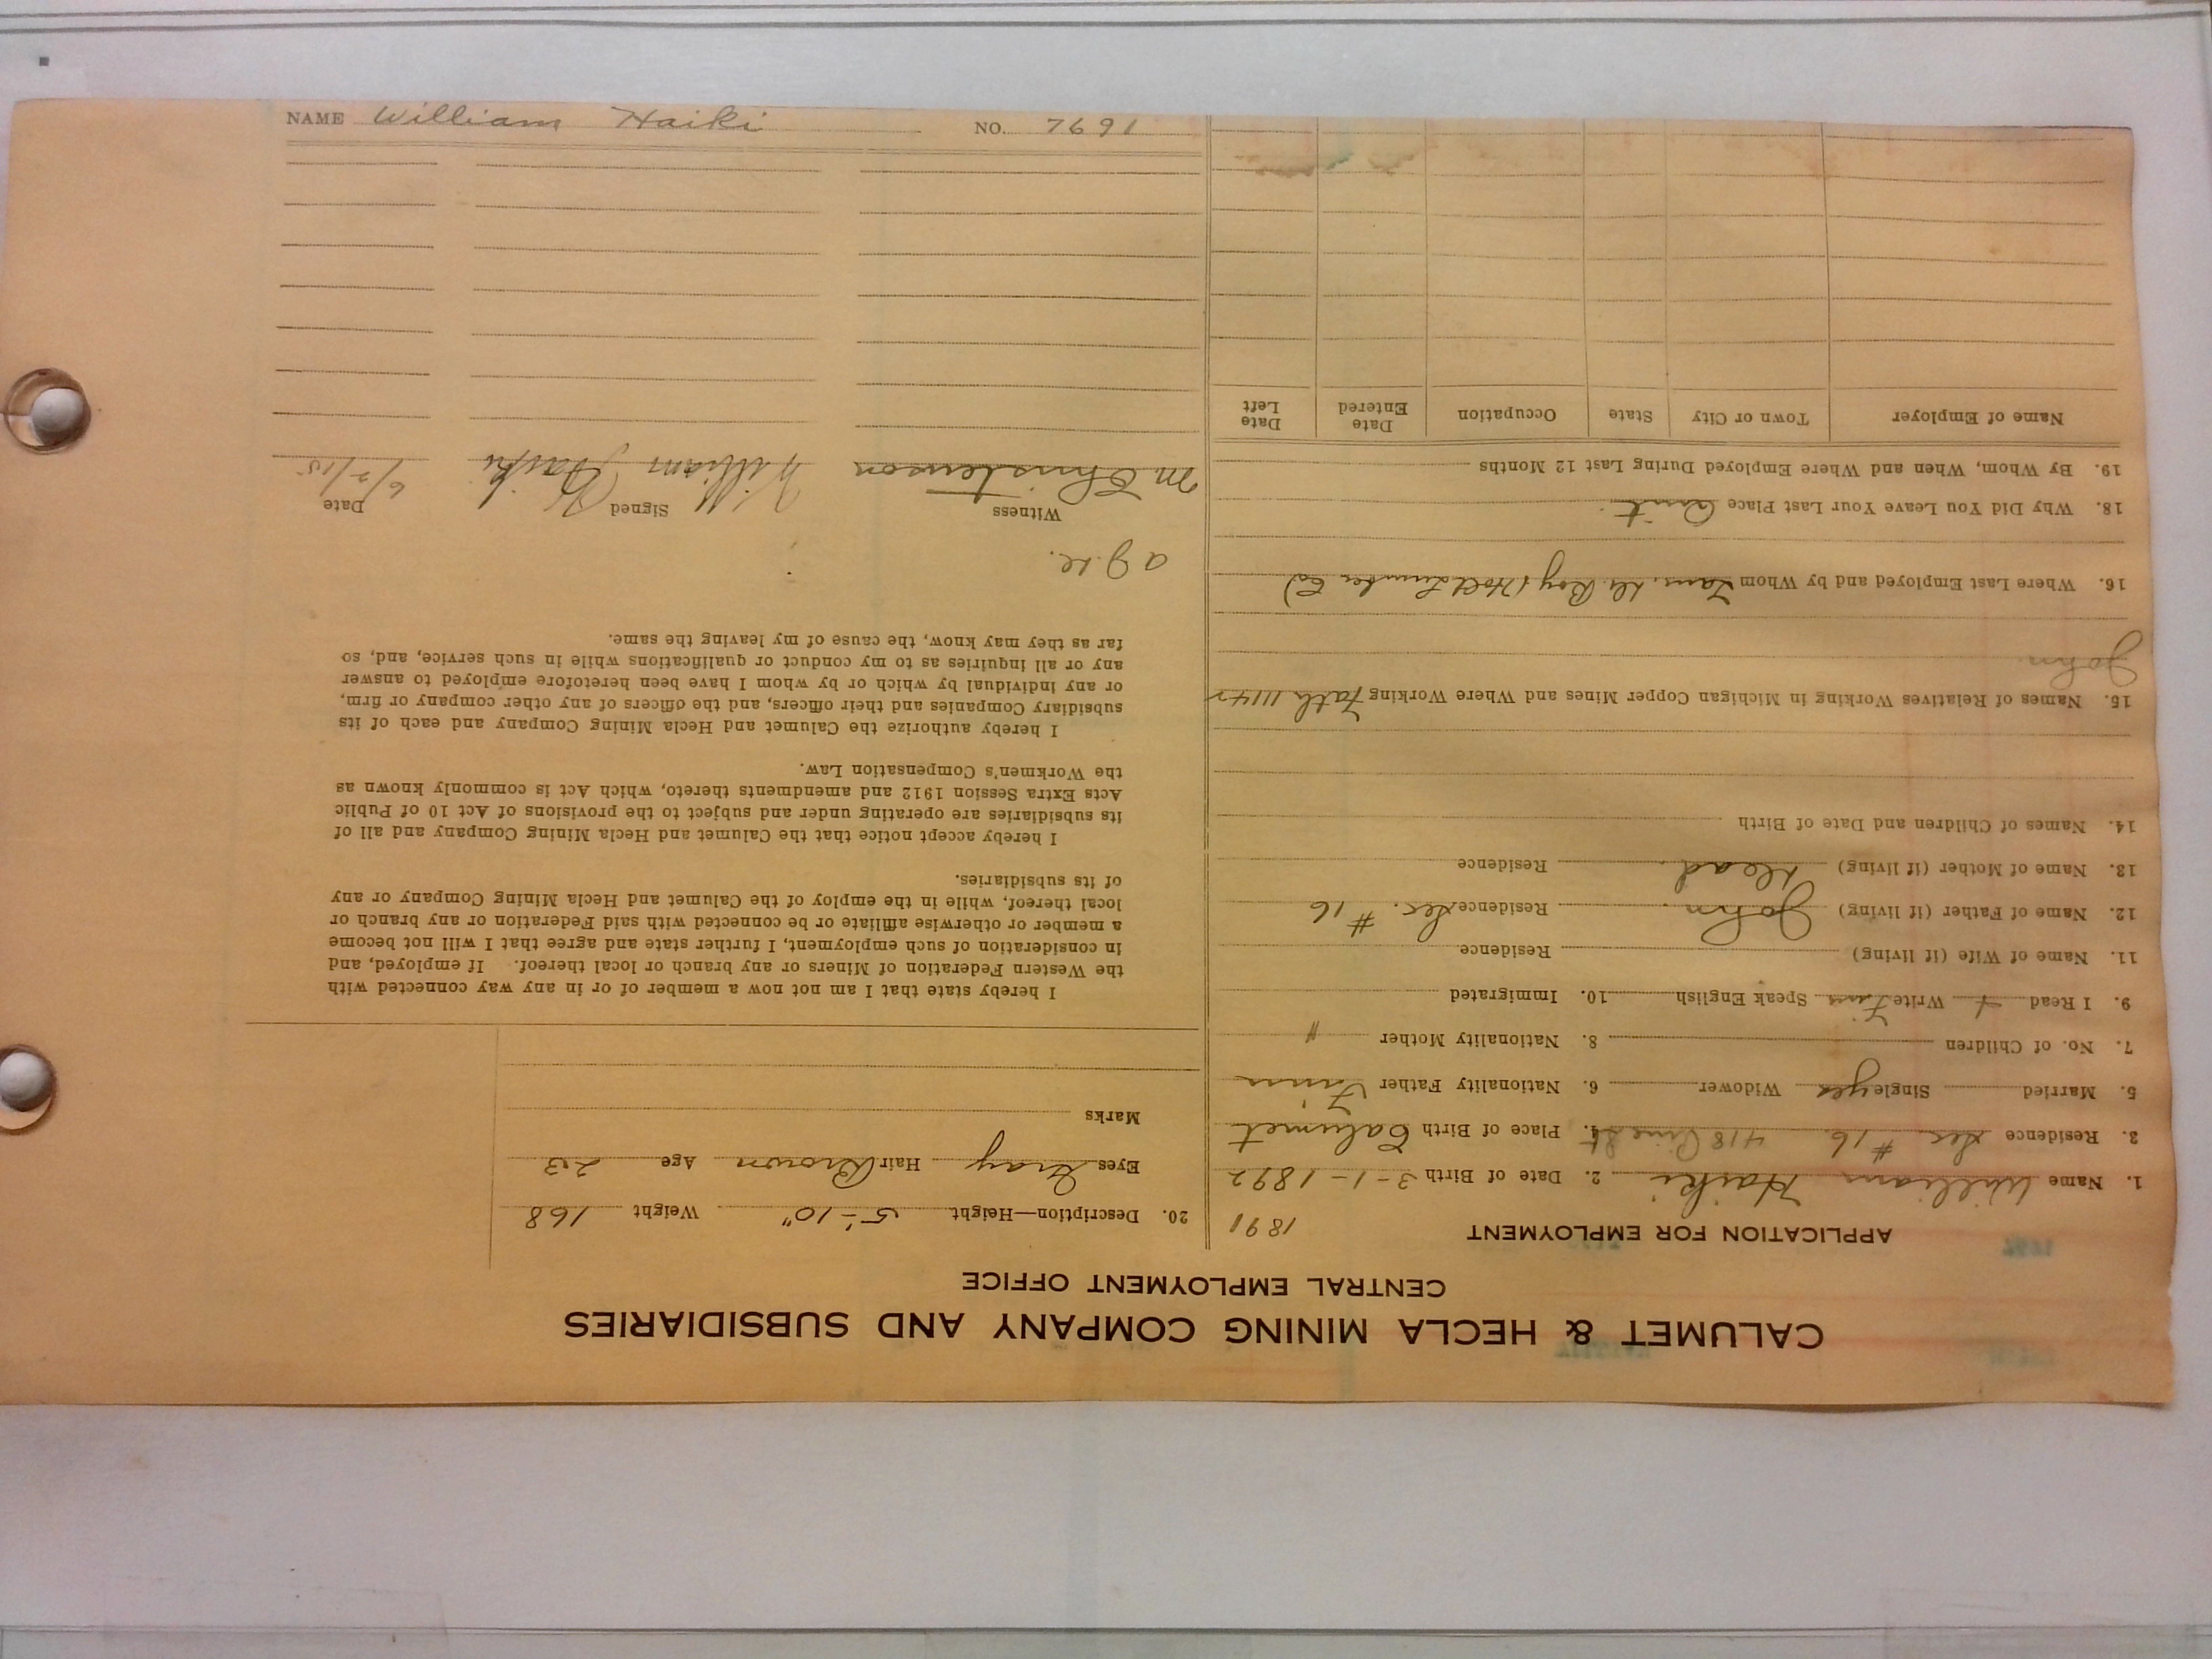 CALUMET & HECLA MINING COMPANY AND SUBSIDIARIES
CENTRAL EMPLOYMENT OFFICE
APPLICATION FOR EMPLOYMENT 1891
1. Name William Haiki 2. Date of Birth 3-1-1892
3. Residence Sec. #16. 418 Pine St 4. Place of Birth Calumet
5. Married Single yes Widower 6. Nationality Father Finn
7. No. of Children 8. Nationality Mother "
9. I Read + Write Finn Speak English 10. Immigrated
11. Name of Wife (if living) Residence
12. Name of Father (if living) John. Residence Sec. #16
13. Name of Mother (if living) Dead. Residence
14. Names of Children and Date of Birth
15. Names of Relatives Working in Michigan Copper Mines and Where Working Fath
John
16. Where Last Employed and by Whom (Holt Lumber Co)
18. Why Did You Leave Your Last Place Quit.
19. By Whom, When and Where Employed During Last 12 Months
Name of Employer Town or City State Occupation Date Entered Date Left
20. Description—Height 5'-10" Weight 168
Eyes Gray Hair Brown Age 23
Marks
I hereby state that I am not now a member of or in any way connected with
the Western Federation of Miners or any branch or local thereof. If employed, and
in consideration of such employment, I further state and agree that I will not become
a member or otherwise affiliate or be connected with said Federation or any branch or
local thereof, while in the employ of the Calumet and Hecla Mining Company or any
of its subsidiaries.
I hereby accept notice that the Calumet and Hecla Mining Company and all of
its subsidiaries are operating under and subject to the provisions of Act 10 of Public
Acts Extra Session 1912 and amendments thereto, which Act is commonly known as
the Workmen's Compensation Law.
I hereby authorize the Calumet and Hecla Mining Company and each of its
subsidiary Companies and their officers, and the officers of any other company or firm,
or any individual by which or by whom I have been heretofore employed to answer
any or all inquiries as to my conduct or qualifications while in such service, and, so
far as they may know, the cause of my leaving the same.
Witness Signed Date
M Christenson William Haiki 6/2/15
NAME William Haiki NO. 7691